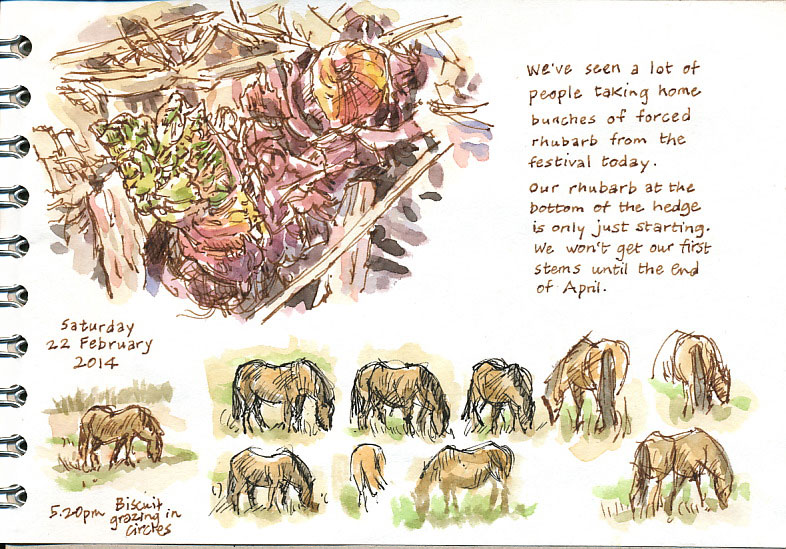 We've seen a lot of
people taking home
bunches of forced
rhubarb from the
festival today.
Our rhubarb at the
bottom of the hedge
is only just starting.
We won't get our first
stems until the end
of April.
Saturday
22 February
2014
5.20pm Biscuit
grazing in
circles